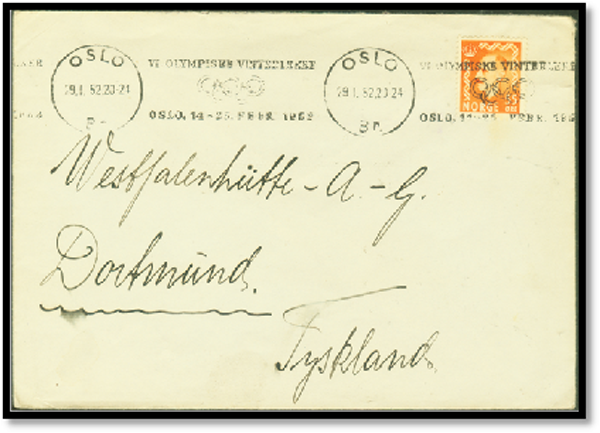 OSLO
29.1.52.20-24
Br
VI OLYMPISKE VINTERLEKER
OSLO, 14-25. FEBR. 1952
OSLO
29.1.52.20-24
Br
VI OLYMPISKE VINTERLEKER
OSLO, 14-25. FEBR. 1952
NORGE
Westfalenhütte - A. - G.
Dortmund.
Tyskland